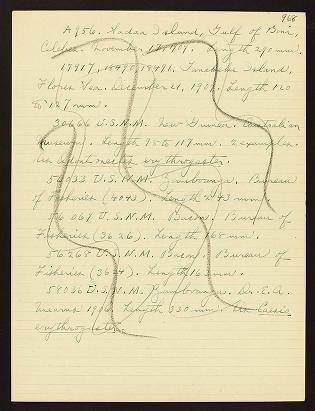 968
A956. Nadaa Island, Gulf of Boni,
Celebes. November 17, 1909. Length 290 mm.
17917, 18490, 18491. Tanabaka Island,
Flores Sea. December 21, 1909. Length 120
to 127 mm.
20666 U.S.N.M. New Guinea. Australian
Museum. Length 95 to 117 mm. 2 examples.
As Odontonectes erythrogaster.
56033 U.S.N.M. Zamboanga. Bureau
of Fisheries (4043). Length 243 mm.
56067 U.S.N.M. Bacon. Bureau of
Fisheries (3626). Length 168 mm.
56268 U.S.N.M. Bacon. Bureau of
Fisheries (3624). Length 163 mm.
58036 U.S.N.M. Zamboanga. Dr. E. A.
Mearns 1906. Length 330 mm. As Caesio
erythrogaster.